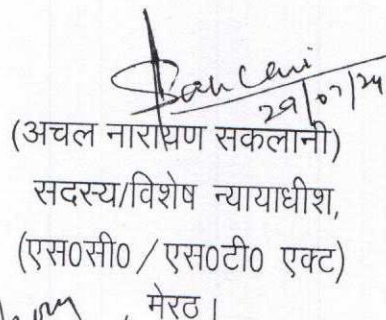 29/07/24
(अचल नारायण सकलानी)
सदस्य/विशेष न्यायाधीश,
(एस०सी०/एस०टी० एक्ट)
, मेरठ।